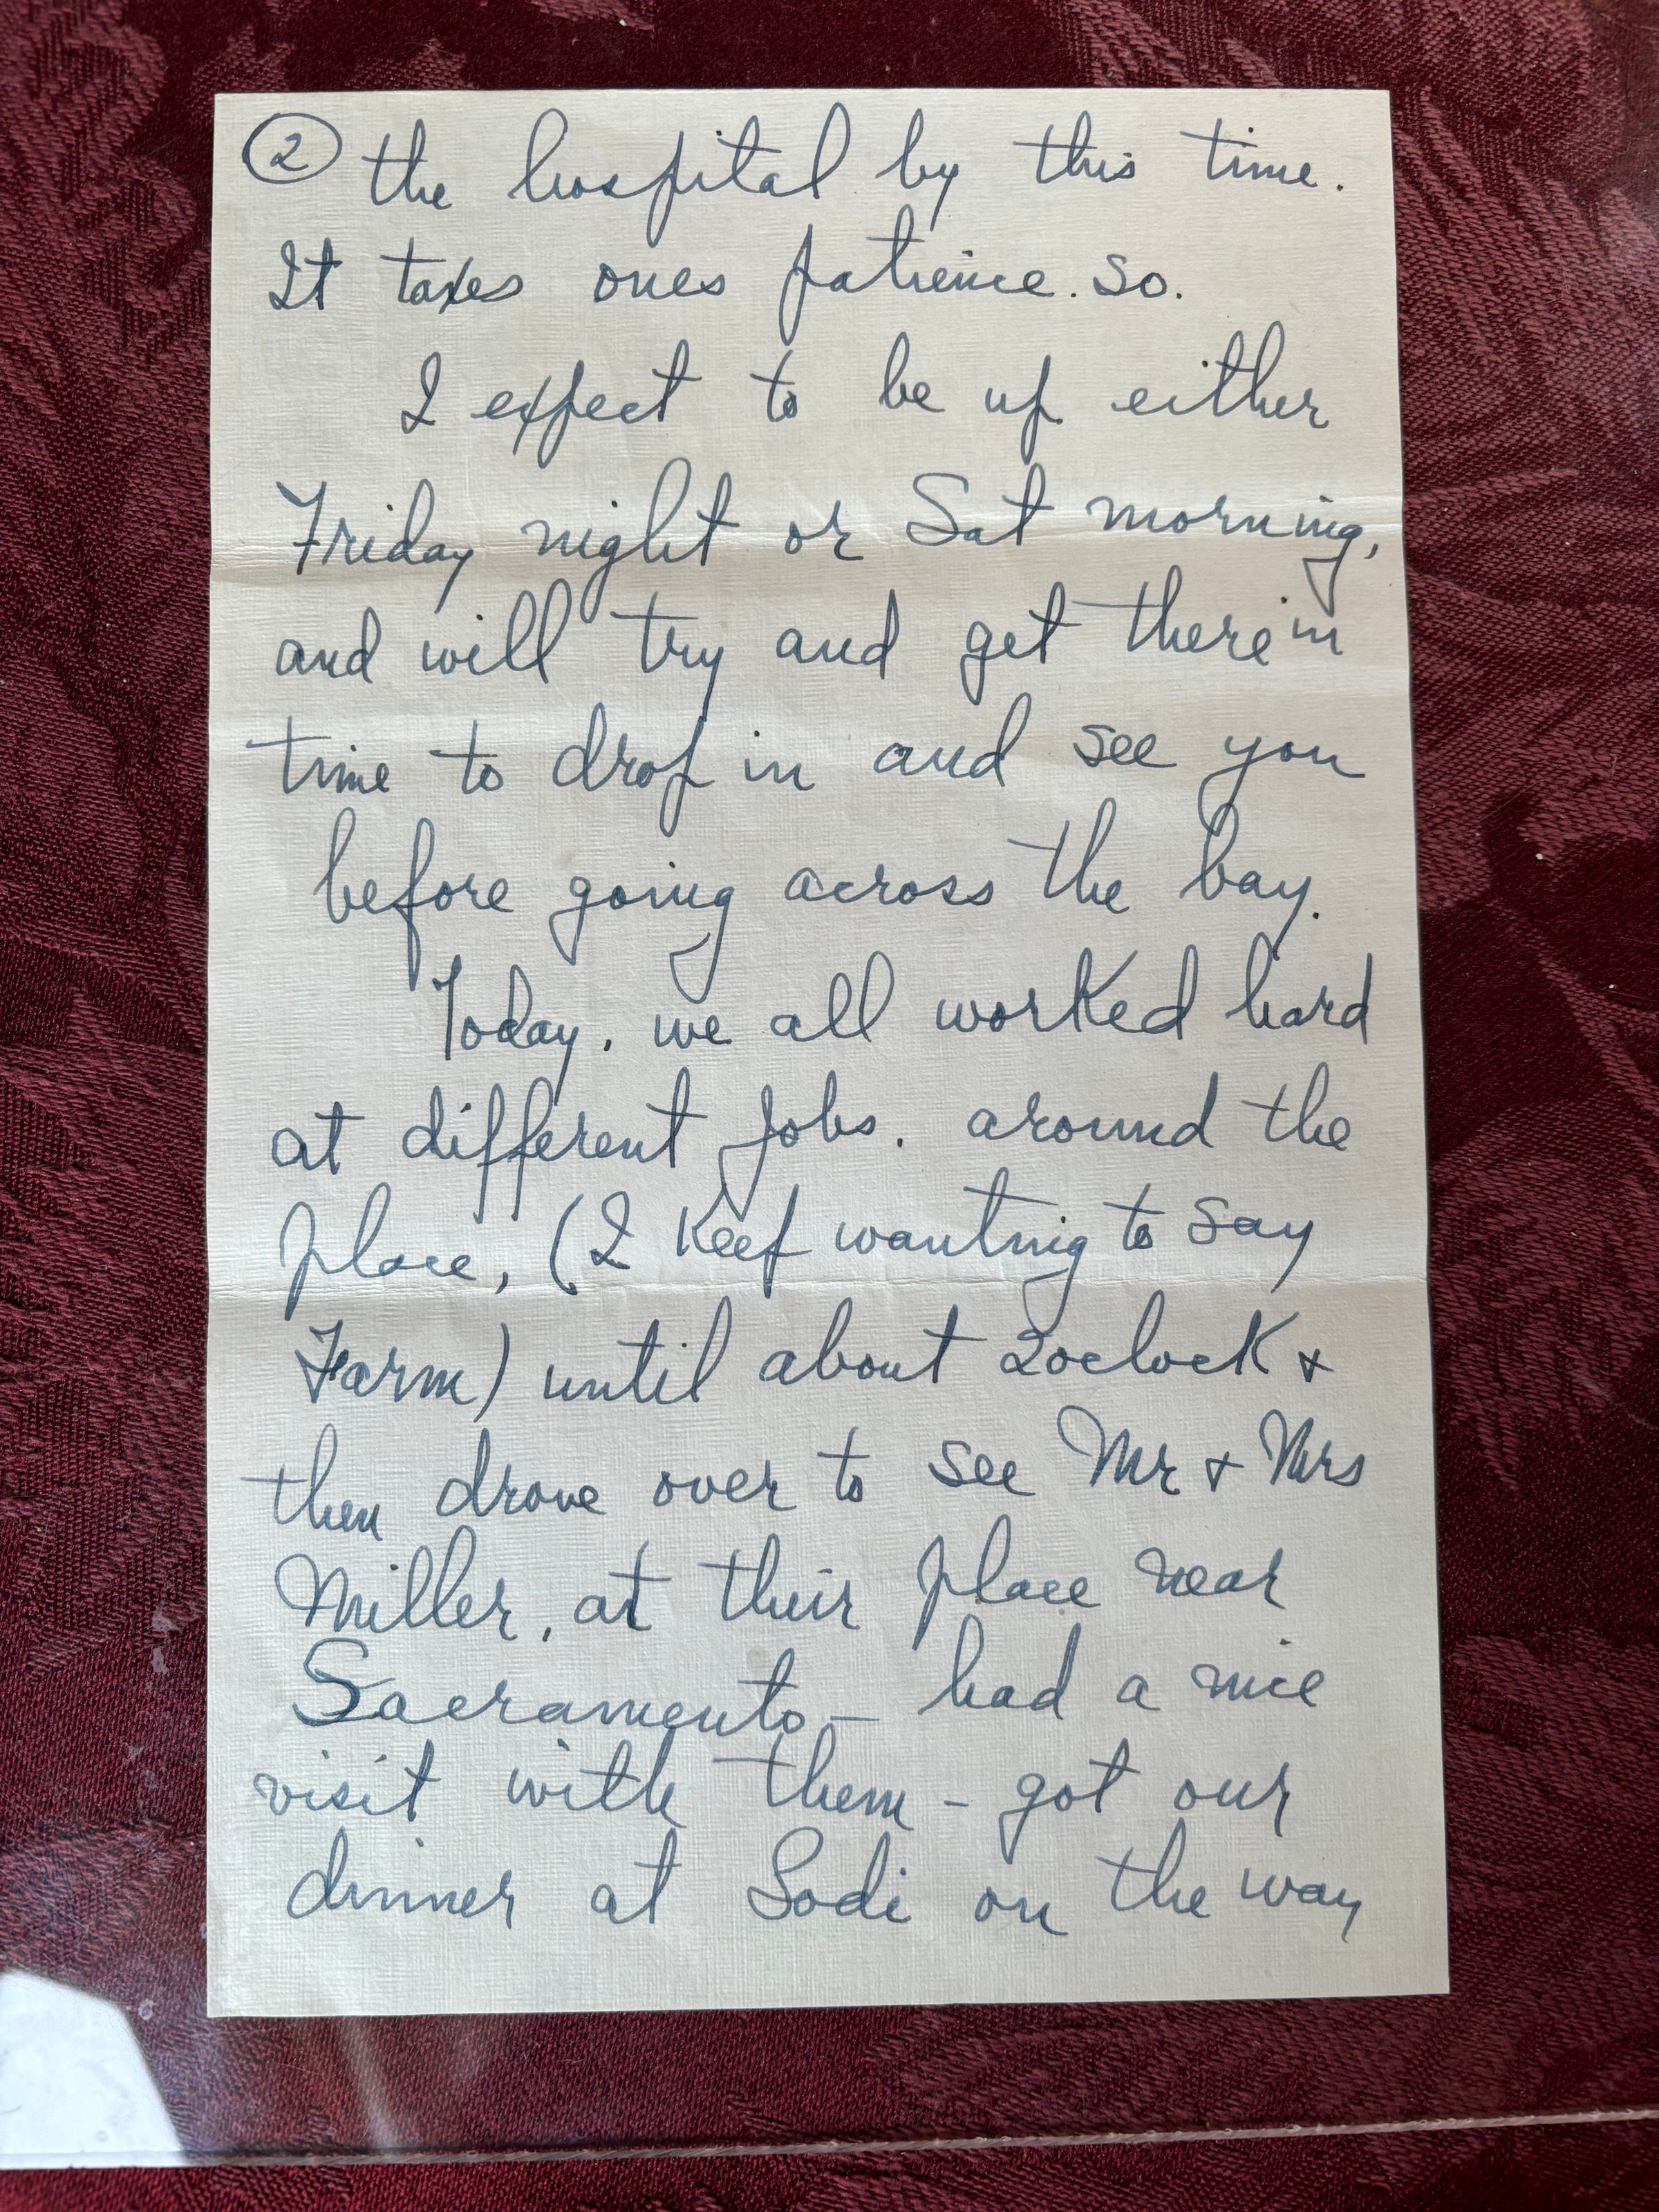 ② the hospital by this time.
It taxes ones patience. so.
I expect to be up either
Friday night or Sat morning,
and will try and get there in
time to drop in and see you
before going across the bay.
Today. we all worked hard
at different jobs. around the
place, (I keep wanting to say
Farm) until about 2oclock +
then drove over to see Mr + Mrs
Miller, at their place near
Sacramento – had a nice
visit with them – got our
dinner at Lodi on the way